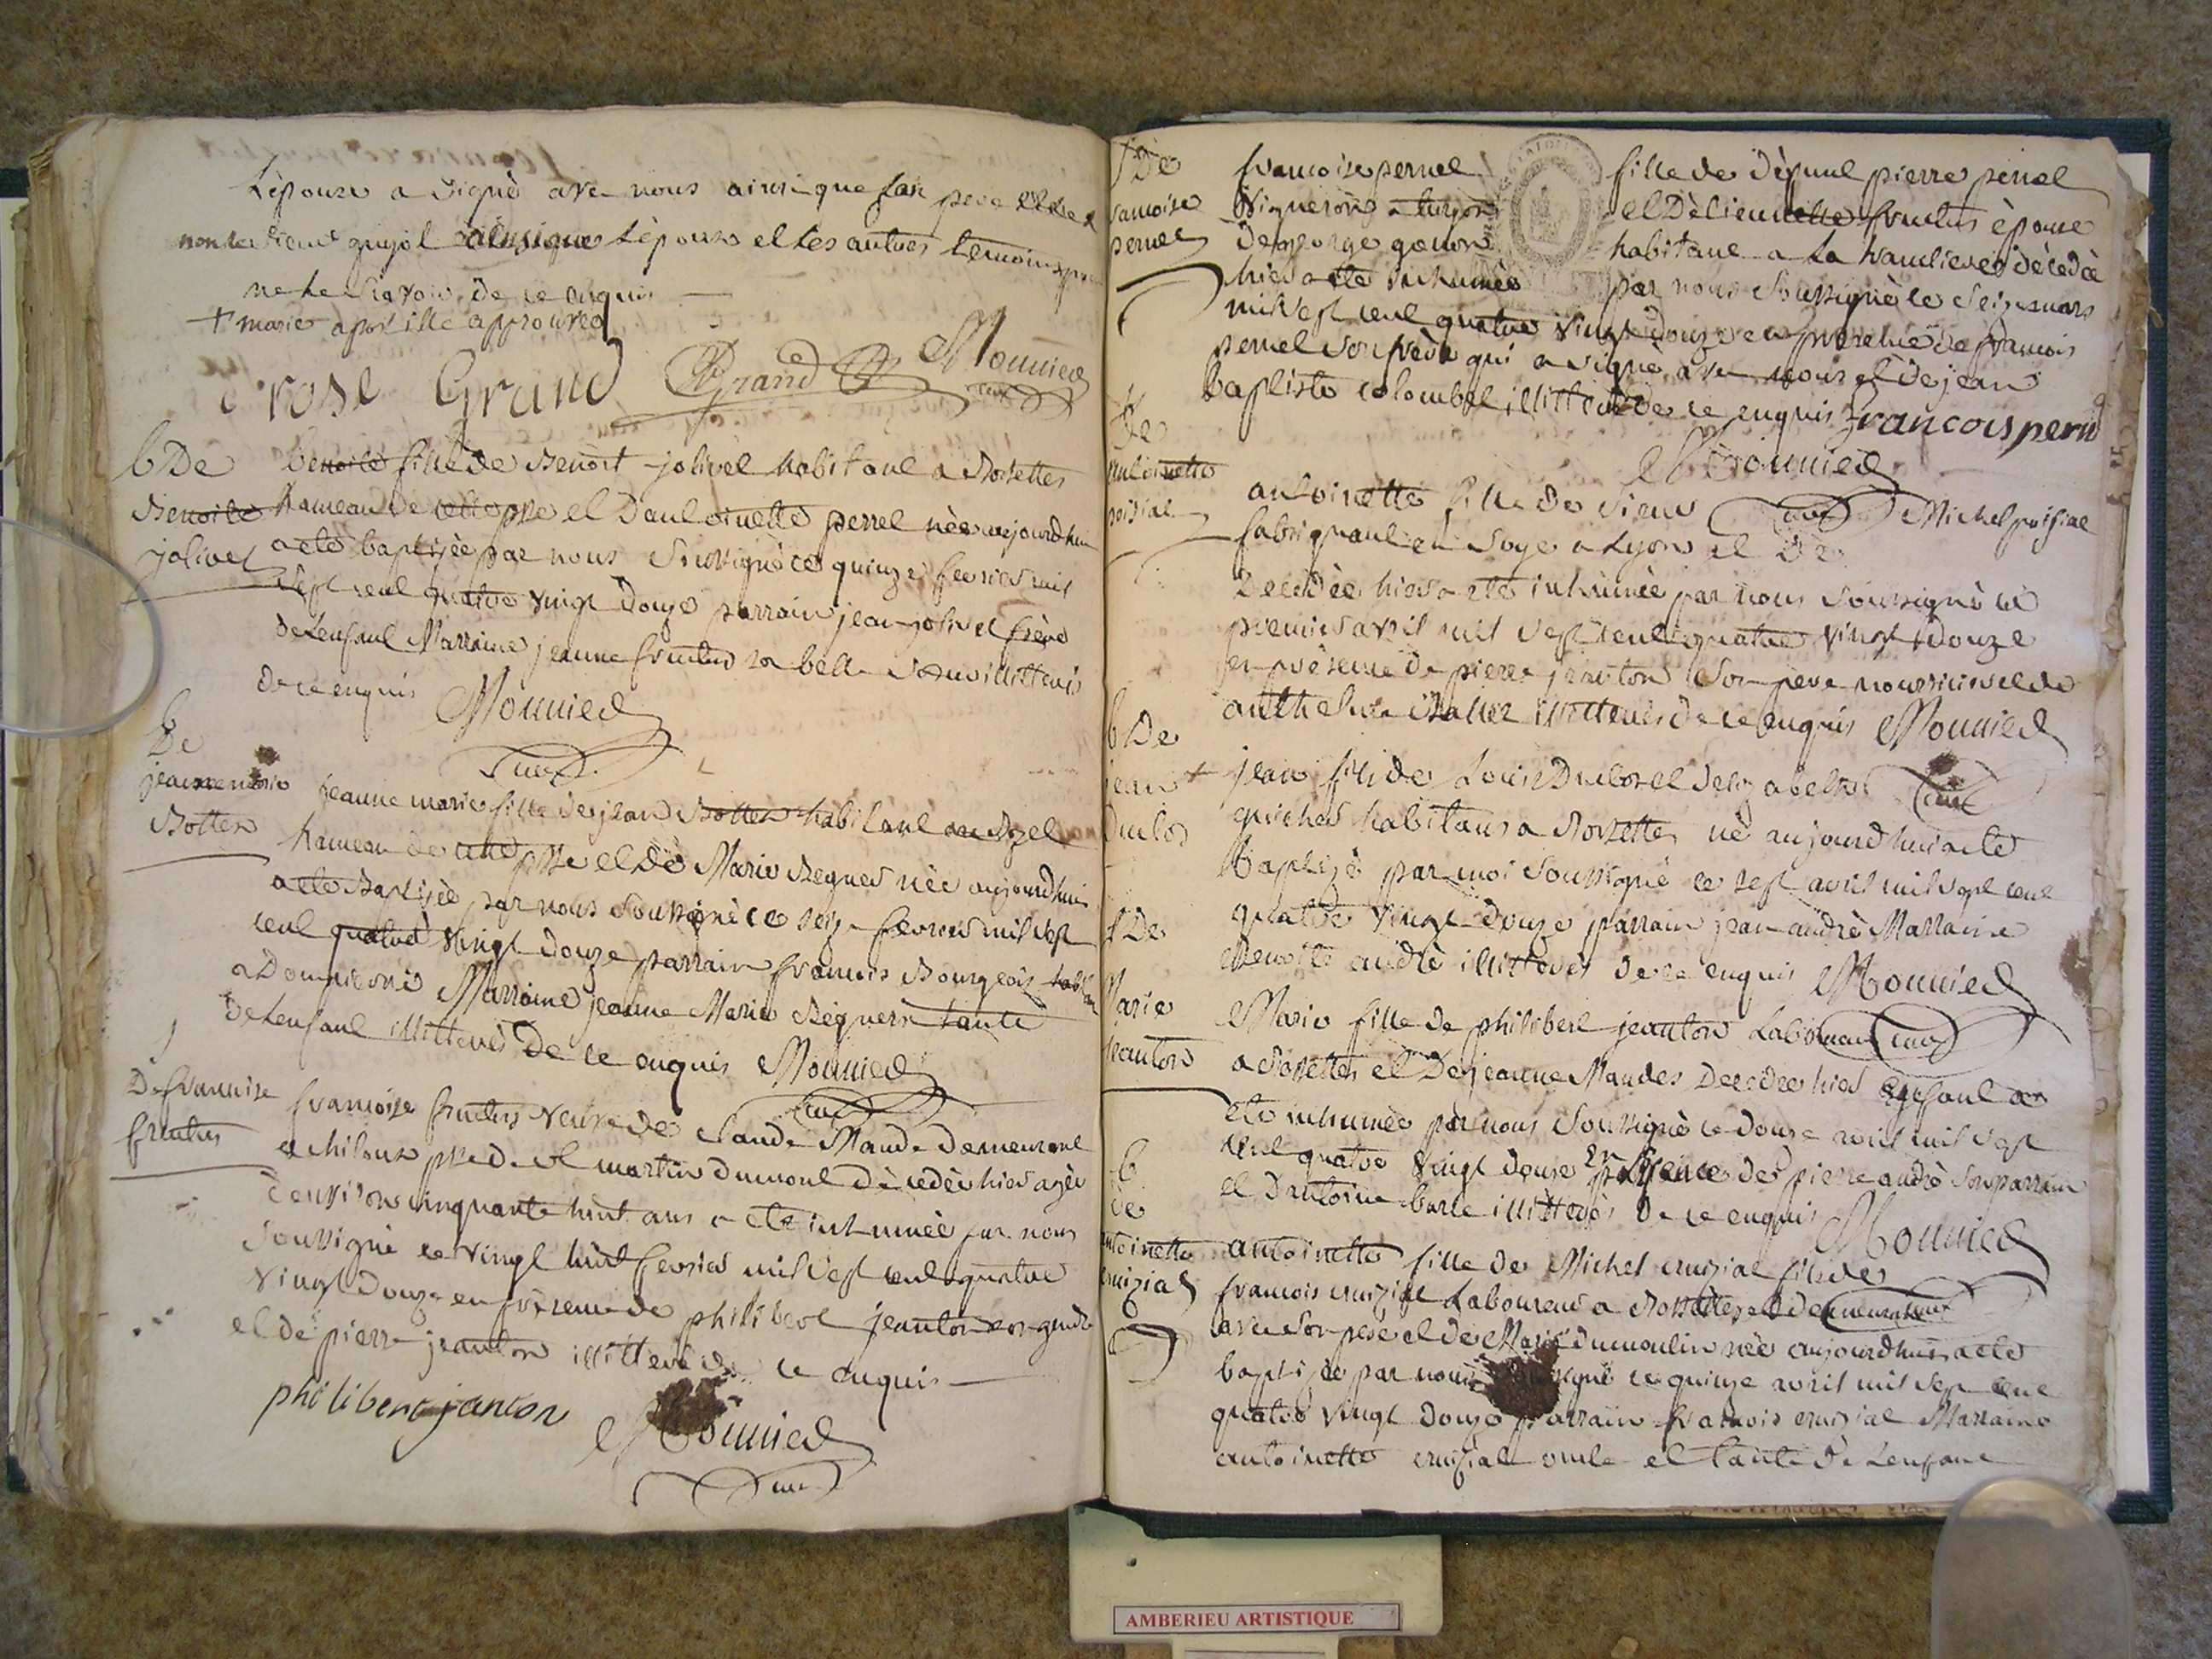 L'épouse a signé avec nous ainsi que son père et le
non le sieur guyot ainsi que l'époux et les autres temoins pour
ne le sçavoir de ce enquis
+ marie apostille approuvée
rose Grand Grand Mounier
curé
b De
Benoite
jolivet
benoite fille de Benoit jolivet habitant a Rossettes
hameau de cette psse et d'antoinette perrel née aujourdhui
a eté baptisée par nous soussigné ce quinze fevrier mil
sept cent quatre vingt douze parrain jean jolivet frère
de Lenfant Marraine jeanne fructus sa belle soeur illitterés
de ce enquis Mounier
curé
b
De
jeanne marie
Bottex
jeanne marie fille de jean Bottex habitant au
hameau de cette psse et de Marie Beguer née aujourdhui
a eté Baptisée par nous soussigné ce seize fevrier mil sept
cent quatre vingt douze parrain francois Bourgeois
a Dompierre Marraine jeanne Marie Beguer tante
de Lenfant illitterés De ce enquis Mounier
curé
De francoise
fructus
francoise fructus veuve de Claude Maude demeurant
a chiloux psse de st martin dumont décedée hier agée
d'environ cinquante huit ans a eté inhumée par nous
soussigné ce vingt huit fevrier mil sept cent quatre
vingt douze en présence de philibert jeanton son gendre
et de pierre jeanton illitteré de ce enquis
philibert janton Mounier
curé
f De
francoise
pernel
francoise pernel fille de défunt pierre pernel
vigneron a et d'étiennette fructus épouse
de george habitant a la décedée
hier a eté inhumée par nous soussigné le seize mars
mil sept cent quatre vingt douze en presence de francois
pernel son frère qui a signé avec nous et de jean
baptiste colombet illitteré de ce enquis francois pern
Mounier
curé
De
antoinette
poisial
antoinette fille de sieur Michel poisial
fabriquant en soye a Lyon et de
Decedée hier a eté inhumée par nous soussigné ce
premier avril mil sept cent quatre vingt douze
en présence de pierre jeanton son père nourricier et de
anthelme illitterés de ce enquis Mounier
curé
b De
jean
Duclos
jean fils de Louis Duclos et d'elizabeth
habitans a Rossettes né aujourdhui a eté
baptizé par moi soussigné ce sept avril mil sept cent
quatre vingt douze parrain jean andrè Marraine
Benoite andrè illitterés de ce enquis Mounier
curé
f De
Marie
jeanton
Marie fille de philibert jeanton Laboureur
a Rossettes et De jeanne Maudes Decedée hier Enfant a
eté inhumée par nous soussigné ce douze avril mil sept
cent quatre vingt douze En présence de pierre andrè son parrain
et D'antoine barle illitterés De ce enquis Mounier
curé
b
de
antoinette
cruizial
antoinette fille de Michel cruizial fils de
francois cruizial Laboureur a Rossettes et demeurant
avec son père et de Marie dumoulin née aujourdhui a eté
baptisée par nous soussigné ce quinze avril mil sept cent
quatre vingt douze parrain francois cruizial Marraine
antoinette cruizial oncle et tante de Lenfant
AMBERIEU ARTISTIQUE